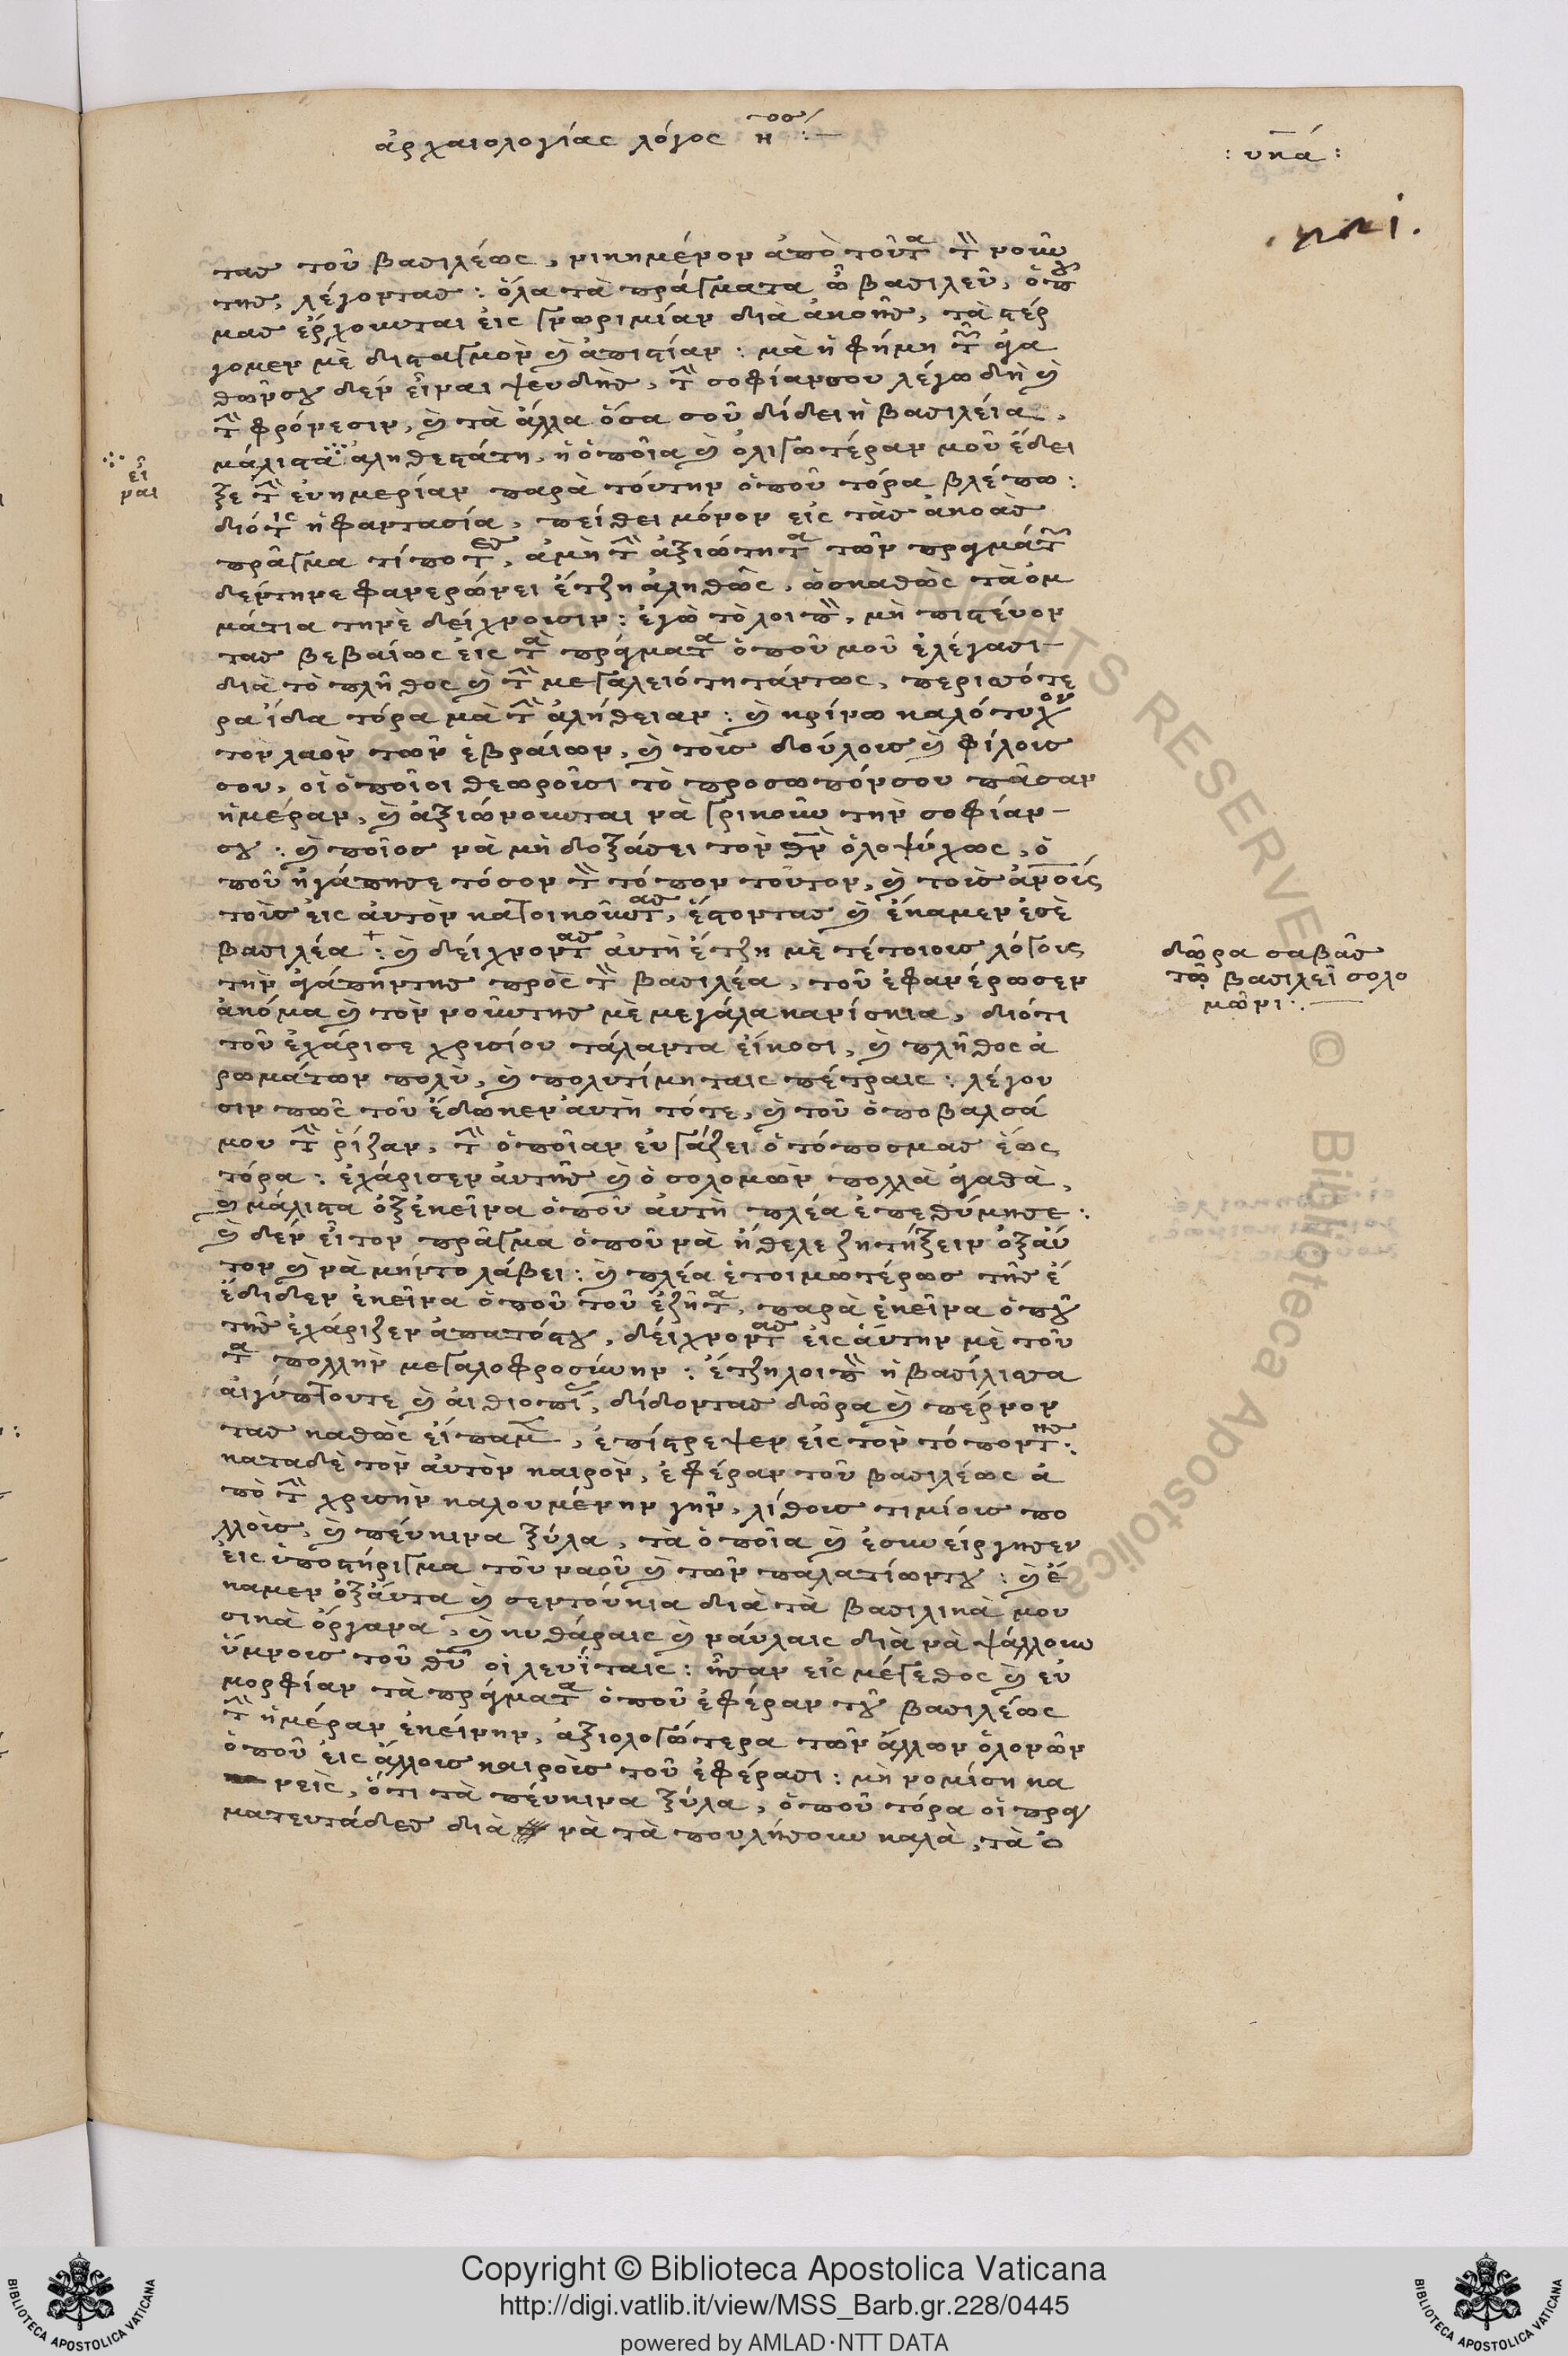 ἀρχαιολογίας λόγος η :—
: υκά :
τας τοῦ βασιλέως, νικημένον ἀπὸ τοῦτα τὸν νοῦν
της, λέγοντας : ὅλα τὰ πράγματα ὦ βασιλεῦ, ὁποῦ
μας ἔρχουνται εἰς γνωριμίαν διὰ ἀκοῆς, τὰ στέρ
γομεν μὲ δισταγμὸν καὶ ἀπιστίαν : μὰ ἡ φήμη τῶν ἀγα
θῶνσου δὲν εἶναι ψευδὴς, τὴν σοφίανσου λέγω δὴ καὶ
τὴν φρόνεσιν, καὶ τὰ ἄλλα ὅσα σοῦ δίδει ἡ βασιλεία,
μάλιστα ἀληθεστάτη, ἡ ὁποῖα καὶ ὀλιγωτέραν μοῦ ἔδει
εἶ
ναι
ξε τὴν εὐημερίαν παρὰ τούτην ὁποῦ τόρα βλέπω :
διότις ἡ φαντασία, πείθει μόνον εἰς τὰς ἀκοὰς
πρᾶγμα τίποτες, ἀμὴ τὴν ἀξιώτητα τῶν πραγμάτων
δέντηνε φανερώνει ἔτζη ἀληθῶς, ὡσκαθὼς τὰ ὀμ
μάτια τηνὲ δείχνουσιν : ἐγὼ τὸ λοιπὸν, μὴ πιστεύον
τας βεβαίως εἰς τὰ πράγματα ὁποῦ μοῦ ἐλέγασι—
διὰ τὸ πλῆθος καὶ τὴν μεγαλειότητάντως, περισσότε
ρα ἴδα τόρα μὰ τὴν ἀλήθειαν : καὶ κρίνω καλότυχον
τὸν λαὸν τῶν ἑβραίων, καὶ τοὺς δούλους καὶ φίλους
σου, οἱ ὁποῖοι θεωροῦσι τὸ προσωπόνσου πᾶσαν
ἡμέραν, καὶ ἀξιώνουνται νὰ γρικοῦν τὴν σοφίαν—
σου : καὶ ποῖος νὰ μὴ δοξάσει τὸν θν ὁλοψύχως, ὁ
ποῦ ἠγάπησε τόσον τὸν τόπον τοῦτον, καὶ τοὺς ανους
τοὺς εἰς αὐτὸν κατοικοῦντας, ἔστοντας καὶ ἔκαμεν ἐσὲ
βασιλέα + : καὶ δείχνοντας αὐτὴ ἔτζη μὲ τέτοιους λόγους
τὴν ἀγάπηντης πρὸς τὸν βασιλέα, τοῦ ἐφανέρωσεν
δῶρα σαβᾶς
τῷ βασιλεῖ σολο
μῶνι : —
ἀκόμα καὶ τὸν νοῦντης μὲ μεγάλα κανίσκια, διότι
τοῦ ἐχάρισε χρισίου τάλαντα εἴκοσι, καὶ πλῆθος ἀ
ρωμάτων πολὺ, καὶ πολυτίμηταις πέτραις : λέγου
σιν πῶς τοῦ ἔδωκεν αὐτὴ τότε, καὶ τοῦ ὀποβαλσά
μου τὴν ῥίζαν, τὴν ὁποῖαν εὐγάζει ὁ τόποσμας ἕως
τόρα : ἐχάρισεν αὐτῆς καὶ ὁ σολομὼν πολλὰ ἀγαθὰ,
καὶ μάλιστα ὀξἐκεῖνα ὁποῦ αὐτὴ πλέα ἐπεθύμησε :
καὶ δὲν εἶτον πρᾶγμα ὁποῦ νὰ ἤθελε ζητήξειν ὀξαὐ
τον καὶ νὰ μήντο λάβει : καὶ πλέα ἑτοιμωτέρως τῆς ἐ
ἔδιδεν ἐκεῖνα ὁποῦ τοῦ ἐζῆτα, παρὰ ἐκεῖνα ὁποῦ
τῆς ἐχάριζεν ἀπατόςου, δείχνοντας εἰς αὔτην μὲ τοῦ
τα πολλὴν μεγαλοφροσύνην : ἔτζηλοιπὸν ἡ βασίλισσα
αἰγύπτουτε καὶ αἰθιοπίας, δίδοντας δῶρα καὶ πέρνον
τας καθὼς εἴπαμεν, ἐπίστρεψεν εἰς τὸν τόποντης :
καταδὲ τὸν αὐτὸν καιρὸν, ἐφέραν τοῦ βασιλέως ἀ
πὸ τὴν χρισὴν καλουμένην γῆν, λίθους τιμίους πο
λλοὺς, καὶ πέυκινα ξύλα, τὰ ὁποῖα καὶ ἐσυνείργησεν
εἰς ὑποστήριγμα τοῦ ναοῦ καὶ τῶν παλατίωντου : καὶ ἔ
καμεν ὀξαὔτα καὶ σεντούκια διὰ τὰ βασιλικὰ μου
σικὰ ὄργανα, καὶ κυθάραις καὶ νάυλαις διὰ νὰ ψάλλουν
ὕμνους τοῦ θυ οἱ λευΐταις : ἦσαν εἰς μέγεθος καὶ εὐ
μορφίαν τὰ πράγματα ὁποῦ ἐφέραν τοῦ βασιλέως
τὴν ἡμέραν ἐκείνην, ἀξιολογώτερα τῶν ἄλλων ὁλονῶν
ὁποῦ εἰς ἄλλους καιροὺς τοῦ ἐφέρασι : μὴ νομίση κα
νεὶς, ὅτι τὰ πέυκινα ξύλα, ὁποῦ τόρα οἱ πραγ
ματευτάδες διὰ νὰ τὰ πουλήσουν καλὰ, τὰ ὀ
RESERVE © Biblioteca Apostolica
Copyright © Biblioteca Apostolica Vaticana
http://digi.vatlib.it/view/MSS_Barb.gr.228/0445
powered by AMLAD·NTT DATA
BIBLIOTECA APOSTOLICA VATICANA
BIBLIOTECA APOSTOLICA VATICANA